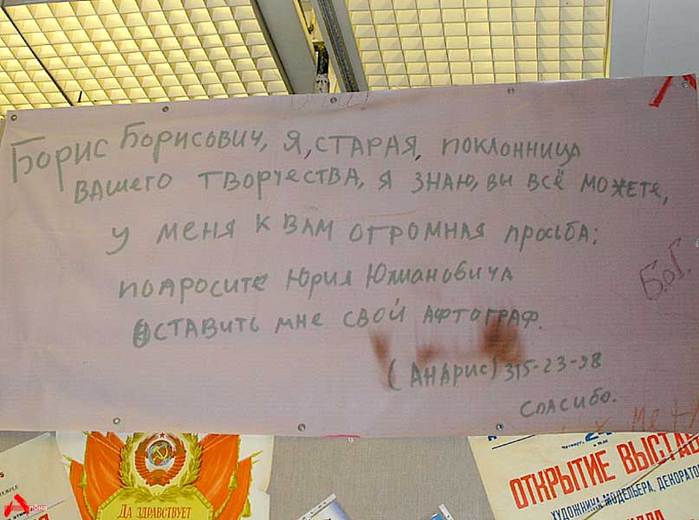 Борис Борисович, я, старая, поклонница
вашего творчества, я знаю, вы всё можете,
у меня к вам огромная просьба:
попросите Юрия Юлиановича
оставить мне свой афтограф.
(Анарис) 315-23-98
Спасибо.
Б.О.Г.
Да здравствует
ОТКРЫТИЕ ВЫСТАВ
ХУДОЖНИКА МОДЕЛЬЕРА, ДЕКОРАТО